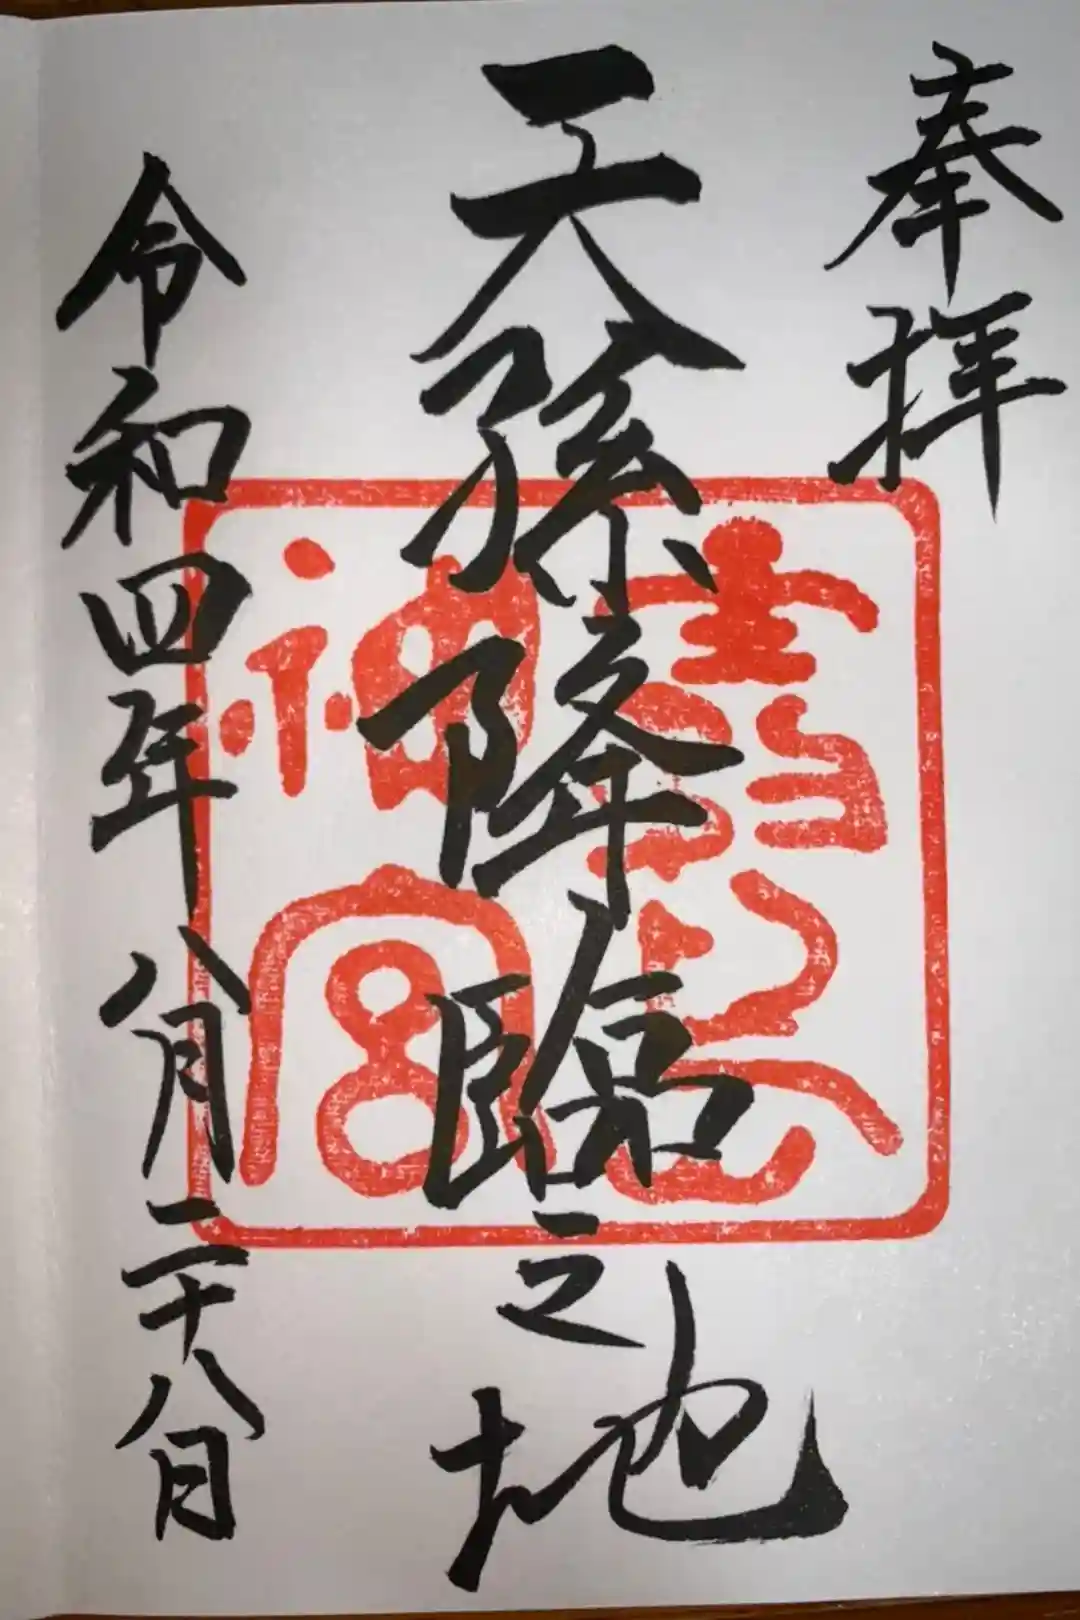 奉拝
天孫降臨之地
霧島
神宮
令和四年八月二十八日